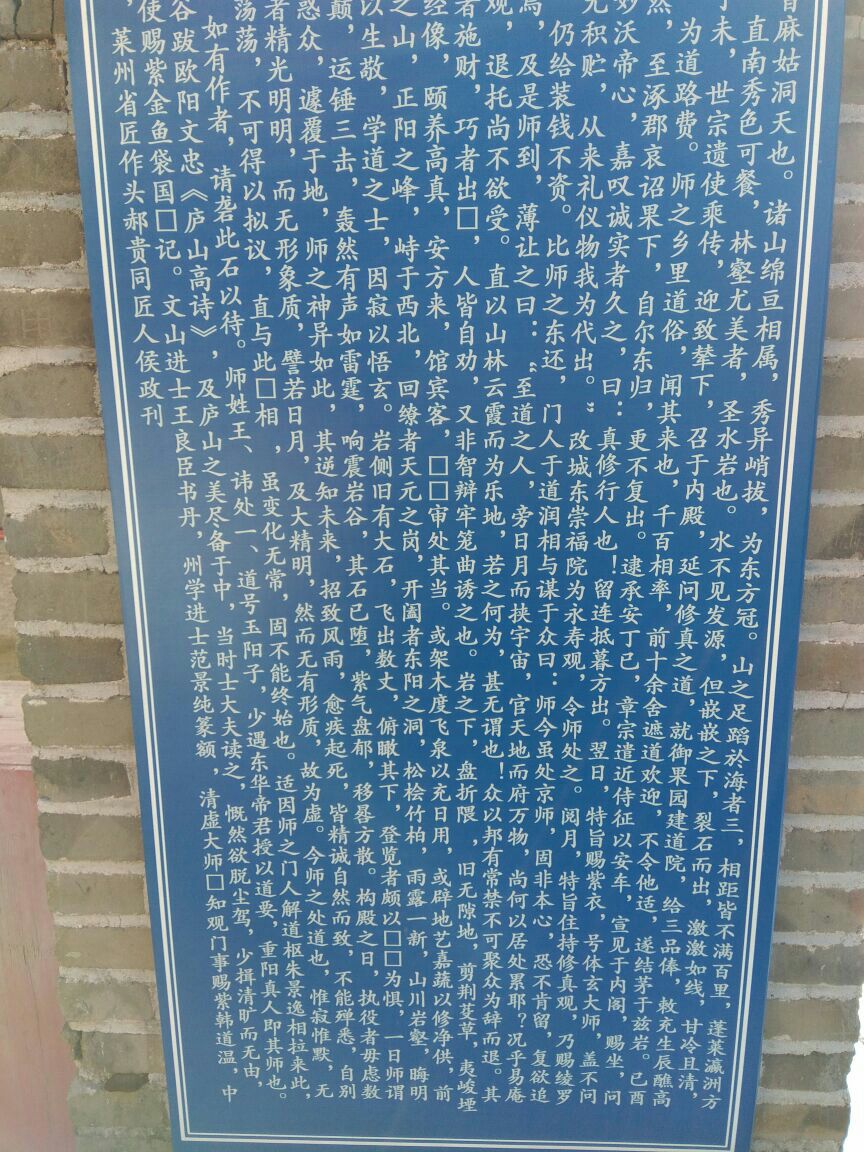 麻姑洞天也。诸山绵亘相属，秀异峭拔，为东方冠。山之足蹈於海者三，相距皆不满百里，蓬莱瀛洲方
直南秀色可餐，林壑尤美者，圣水岩也。水不见发源，但嵌嵌之下，裂石而出，激激如线，甘冷且清，
丁未，世宗遗使乘传，迎致辇下，召于内殿，延问修真之道，就御果园建道院，给三品俸，敕充生辰醮高
为道路费。师之乡里道俗，闻其来也，千百相率，前十余舍遮道欢迎，不令他适，遂结茅于兹岩。已酉
然，至涿郡哀诏果下，自尔东归，更不复出。逮承安丁已，章宗遣近侍征以安车，宣见于内阁，赐坐，问
妙沃帝心，嘉叹诚实者久之，曰：真修行人也！留连抵暮方出。翌日，特旨赐紫衣，号体玄大师，盖不问
无积贮，从来礼仪物我为代出。”改城东崇福院为永寿观，令师处之。阅月，特旨住持修真观，乃赐绫罗
仍给装钱不资。比师之东还，门人于道润相与谋于众曰：师今虽处京师，固非本心，恐不肯留，复欲追
焉，及是师到，薄让之曰：“至道之人，旁日月而挟宇宙，官天地而府万物，尚何以居处累耶？况乎易庵
观，退托尚不欲受。直以山林云霞而为乐地，若之何为，甚无谓也！众以邦有常禁不可聚众为辞而退。其
者施财，巧者出□，人皆自劝，又非智辩牢笼曲诱之也。岩之下，盘折隈，旧无隙地，剪荆芟草，夷峻堙
经像，颐养高真，安方来，馆宾客，□□审处其当。或架木度飞泉以充日用，或辟地艺嘉蔬以修净供，前
之山，正阳之峰，峙于西北，回缭者天元之岗，开阖者东阳之洞，松桧竹柏，雨露一新，山川岩壑，晦明
以生敬，学道之士，因寂以悟玄。岩侧旧有大石，飞出数丈，俯瞰其下，登览者颇以□□为惧，一日师谓
颠，运锤三击，轰然有声如雷霆，响震岩谷，其石已堕，紫气盘郁，移晷方散。构殿之日，执役者毋虑数
惑众，遽覆于地，师之神异如此，其逆知未来，招致风雨，愈疾起死，皆精诚自然而致，不能殚悉，自别
者精光明明，而无形象质，譬若日月，及大精明，然而无有形质，故为虚。今师之处道也，惟寂惟默，无
荡荡，不可得以拟议，直与此□相，虽变化无常，固不能终始也。适因师之门人解道枢朱景逸相拉来此，
如有作者，请砻此石以待。师姓王、讳处一、道号玉阳子，少遇东华帝君授以道要，重阳真人即其师也。
谷跋欧阳文忠《庐山高诗》，及庐山之美尽备于中，当时士大夫读之，慨然欲脱尘驾，少揖清旷而无由，
使赐紫金鱼袋国□记。文山进士王良臣书丹，州学进士范景纯篆额，清虚大师□知观门事赐紫韩道温，中
，莱州省匠作头郝贵同匠人侯政刊